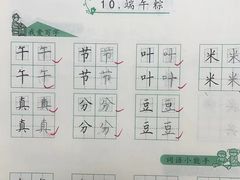 10.端午粽
我会写字
午 午 节 节 叶 叶 米 米
午 午 节 节 叶 叶 米 米
真 真 分 分 豆 豆
真 真 分 分 豆 豆
词语小能手